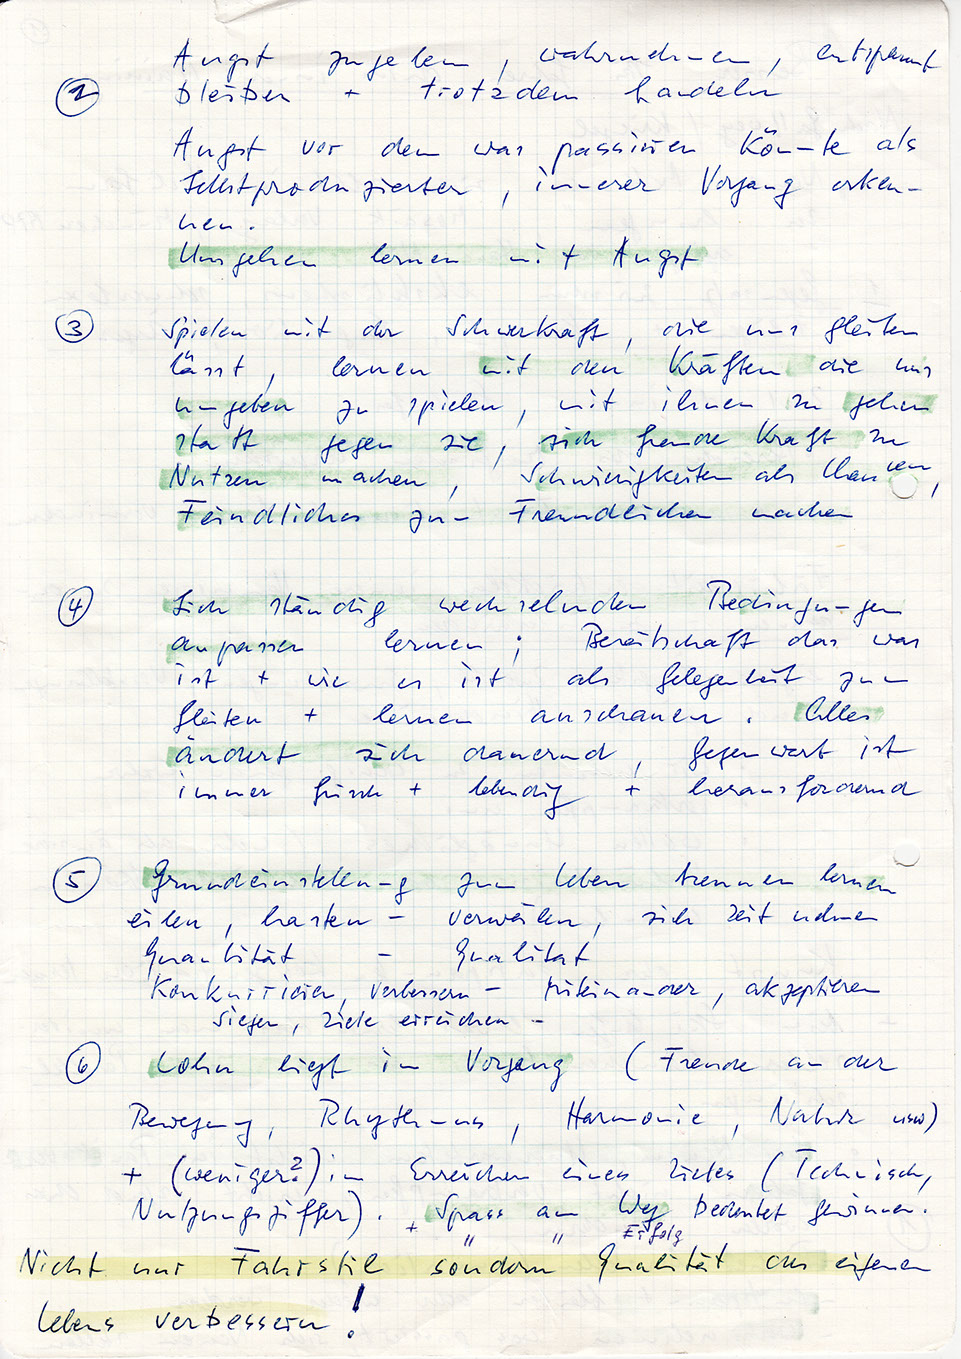 Angst zugeben, wahrnehmen, entspannt
② bleiben + trotzdem handeln
Angst vor dem was passieren könnte als
Selbstproduzierter, innerer Vorgang erken-
nen.
Umgehen lernen mit Angst
③ Spielen mit der Schwerkraft, die uns gleiten
lässt, lernen mit den Kräften die uns
umgeben zu spielen, mit ihnen zu gehen
statt gegen sie, sich fremde Kraft zu
Nutzen machen, Schwierigkeiten als Chancen,
Feindliches zum Freundlichen machen
④ Sich ständig wechselnden Bedingungen
anpassen lernen; Bereitschaft das was
ist + wie es ist als Gelegenheit zum
Gleiten + lernen anschauen. Alles
ändert sich dauernd, Gegenwart ist
immer frisch + lebendig + herausfordernd
⑤ Grundeinstellung zum Leben trennen lernen
eilen, hasten - verweilen, sich Zeit nehmen
Quantität - Qualität
Konkurrieren, verbessern - Miteinander, akzeptieren
Siegen, Ziele erreichen -
⑥ Lohn liegt im Vorgang (Freude an der
Bewegung, Rhythmus, Harmonie, Natur usw)
+ (weniger?) im Erreichen eines Zieles (Technisch,
Nutzungsziffer). + Spass am Weg bedeutet gewinnen.
" " Erfolg
Nicht nur Fahrstil sondern Qualität des eigenen
Lebens verbessern!